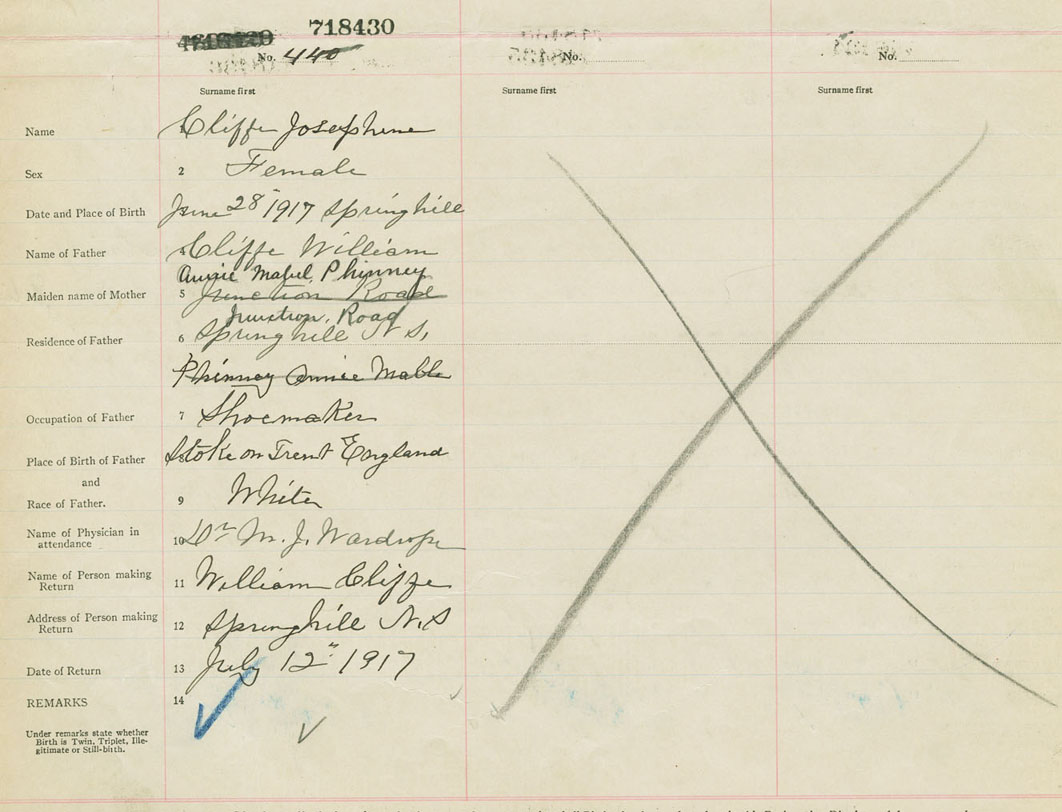 718430
No. 440 No. No.
Surname first Surname first Surname first
Name 1 Cliffe Josephine
Sex 2 Female
Date and Place of Birth June 28" 1917 Springhill
Name of Father 4 Cliffe William
Annie Mabel Phinney
Maiden name of Mother 5 Junction Road
Junction Road
Residence of Father 6 Springhill N S,
Phinney Annie Mable
Occupation of Father 7 Shoemaker
Place of Birth of Father Stoke on Trent England
and
Race of Father. 9 White
Name of Physician in
attendance 10 Dr M. J. Wardrope
Name of Person making
Return 11 William Cliffe
Address of Person making
Return 12 Springhill N.S
Date of Return 13 July 12" 1917
REMARKS 14
Under remarks state whether
Birth is Twin, Triplet, Ille-
gitimate or Still-birth.